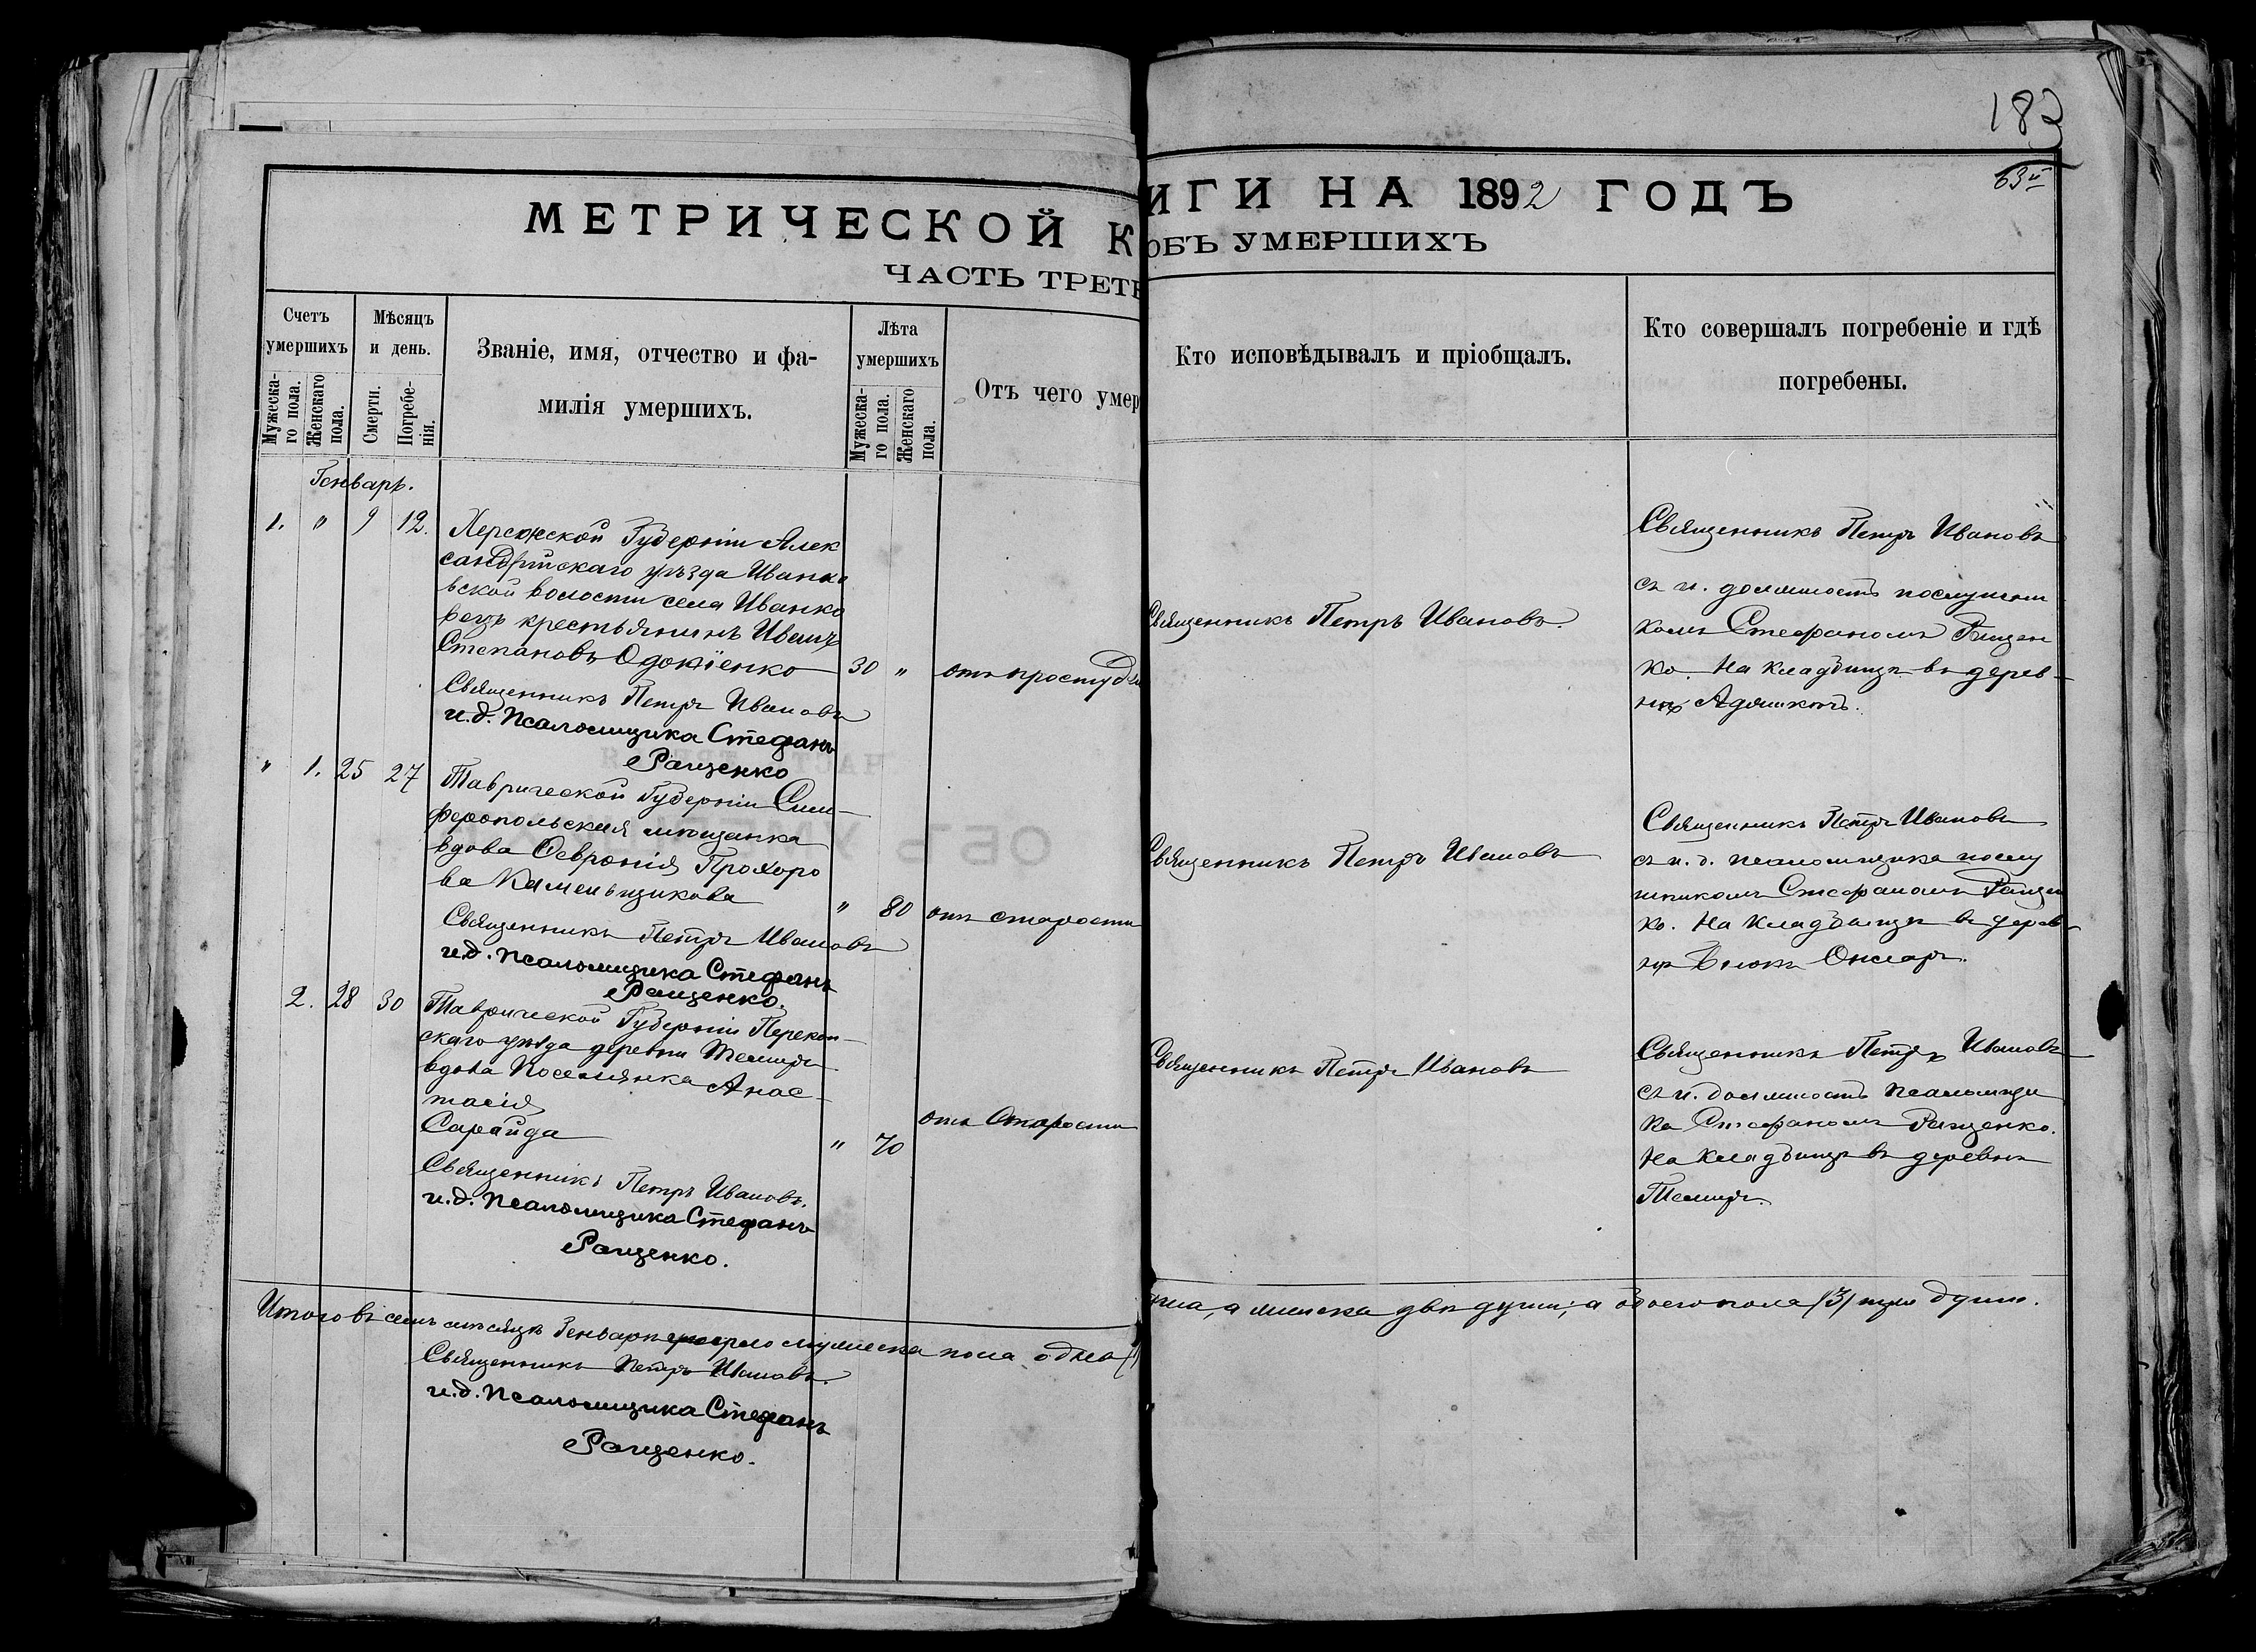 182
63й
МЕТРИЧЕСКОЙ К
ИГИ НА 1892 ГОДЪ
ЧАСТЬ ТРЕТЬ
ОБЪ УМЕРШИХЪ
Счетъ
умершихъ
Мужеска-
го пола.
Женскаго
пола.
Мѣсяцъ
и день.
Смерти.
Погребе-
нія.
Званіе, имя, отчество и фа-
милія умершихъ.
Лѣта
умершихъ
Мужеска-
го пола.
Женскаго
пола.
Отъ чего умер
Кто исповѣдывалъ и пріобщалъ.
Кто совершалъ погребеніе и гдѣ
погребены.
Генварь.
1. " 9 12.
Херсонской Губерніи Алек
сандрійскаго уѣзда Иванко
вской волости села Иванко
вецъ крестьянинъ Иванъ
Степановъ Одокіенко 30 " отъ простуды
Священникъ Петръ Ивановъ
и.д. Псаломщика Стефанъ
Ращенко
Священникъ Петръ Ивановъ.
Священникъ Петръ Ивановъ
съ и. должность послушни
комъ Стефаномъ Ращен
ко. На кладбищѣ въ дерев-
нѣ
" 1. 25 27
Таврической Губерніи Сим-
феропольская мѣщанка
вдова Февронія Прохоро
ва Каменьщикова " 80 отъ старости
Священникъ Петръ Ивановъ
и.д. Псаломщика Стефанъ
Ращенко.
Священникъ Петръ Ивановъ
Священникъ Петръ Ивановъ
съ и. д. псаломщика послу
шникомъ Стефаномъ Ращен
ко. На кладбищѣ въ дерев-
нѣ
2. 28 30
Таврической Губерніи Перекоп-
скаго уѣзда деревни Темиръ
вдова Поселянка Анас-
тасія
Сарайда " 70 отъ Старости
Священникъ Петръ Ивановъ.
и.д. Псаломщика Стефанъ
Ращенко.
Священникъ Петръ Ивановъ
Священникъ Петръ Ивановъ
съ и. должность псаломщи
ка Стефаномъ Ращенко.
На кладбищѣ въ деревнѣ
Темиръ.
Итого въ семъ мѣсяцѣ Генварѣ умерло мужеска пола одна (1)
а женска двѣ души; а обоего пола (3) три души.
Священникъ Петръ Ивановъ.
и.д. Псаломщика Стефанъ
Ращенко.